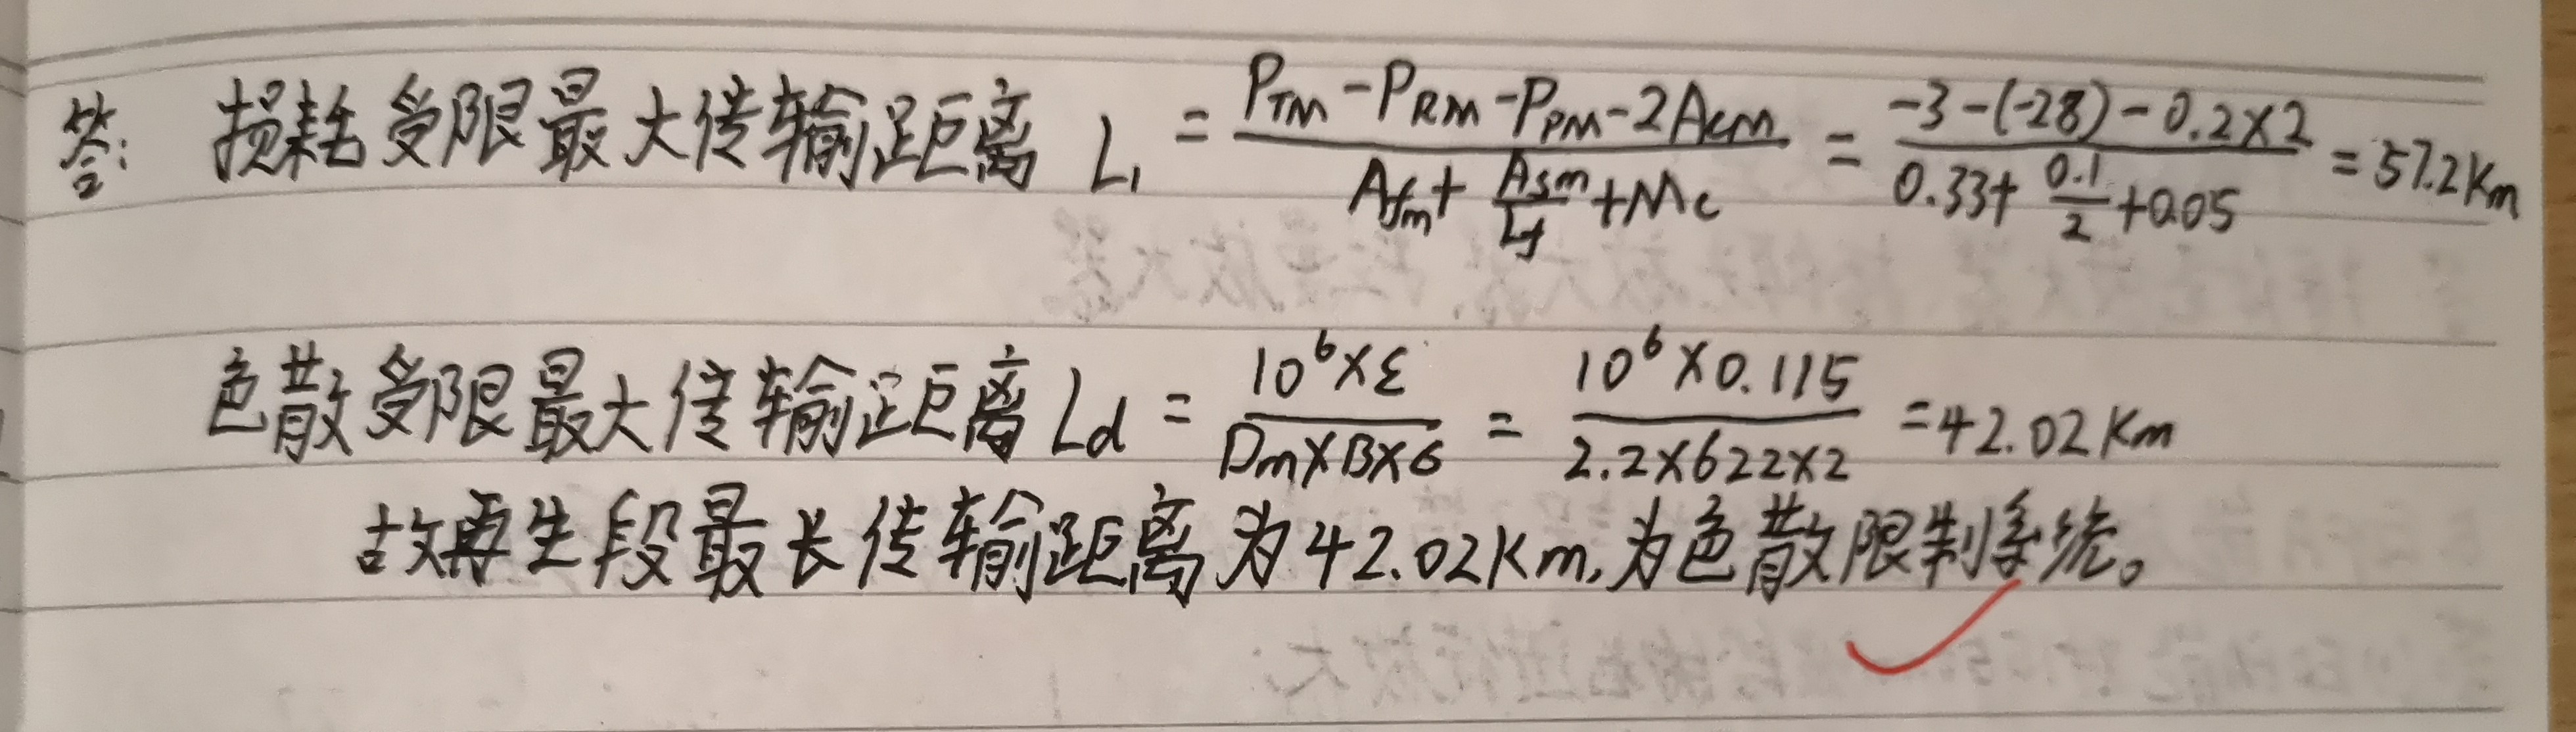 答: 损耗受限最大传输距离 L₁ = (P_TM - P_RM - P_PM - 2A_cm) / (A_fm + A_sm/L_f + M_c) = (-3-(-28)-0.2×2) / (0.33+ 0.1/2 +0.05) = 57.2Km
色散受限最大传输距离 Ld = (10⁶×ε) / (Dm×B×6) = (10⁶×0.115) / (2.2×622×2) = 42.02Km
故再生段最长传输距离为42.02Km,为色散限制系统。